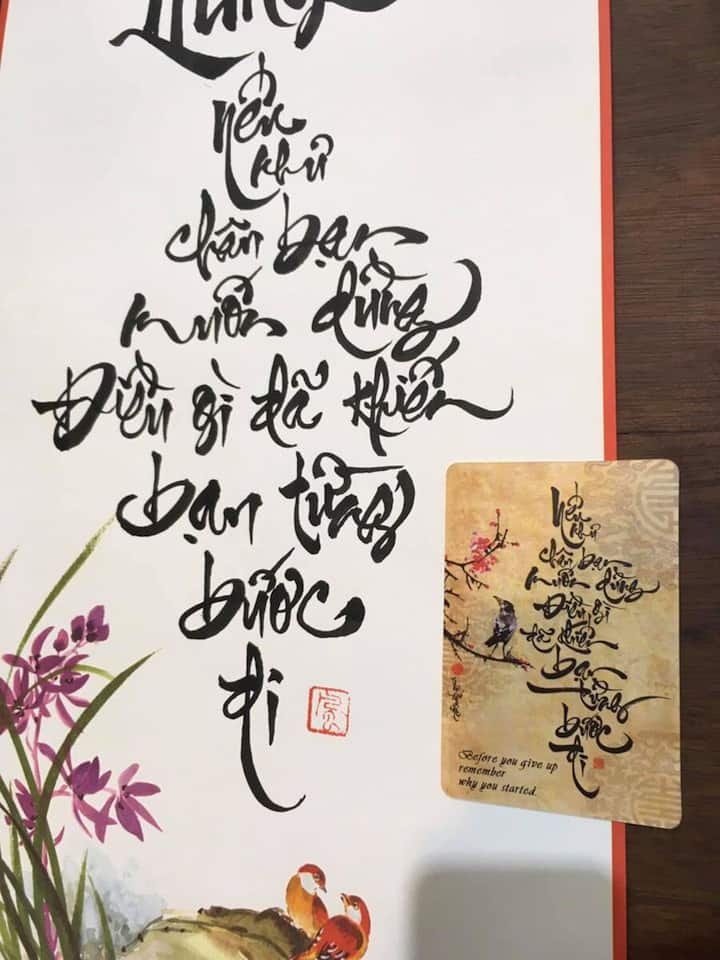 Nếu
khi
chân bạn
muốn dừng
Điều gì đã khiến
bạn từng
bước
đi
Nếu
khi
chân bạn
muốn dừng
Điều gì
đã khiến
bạn
từng
bước
đi
Before you give up
remember
why you started.